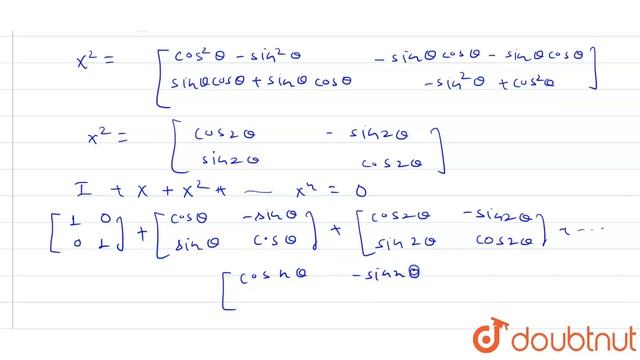 x² = [ cos²θ - sin²θ    - sinθ cosθ - sinθ cosθ
sinθ cosθ + sinθ cosθ    - sin²θ + cos²θ ]
x² = [ cos2θ    - sin2θ
sin2θ    cos2θ ]
I + x + x² + — xⁿ = 0
[ 1 0    + [ cosθ    -sinθ    + [ cos2θ    -sin2θ
0 1 ]    sinθ    cosθ ]    sin2θ    cos2θ ] ~ ...
[ cos nθ    - sin nθ
doubtnut